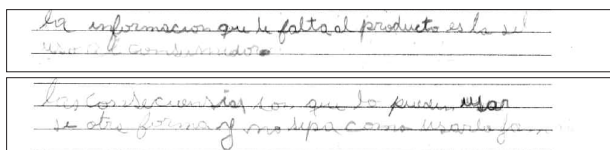 la informacion que le falta al producto es la se
uso al consumidor
las consecuensias son que lo pueden usar
se otra forma y no sepa como usarlo